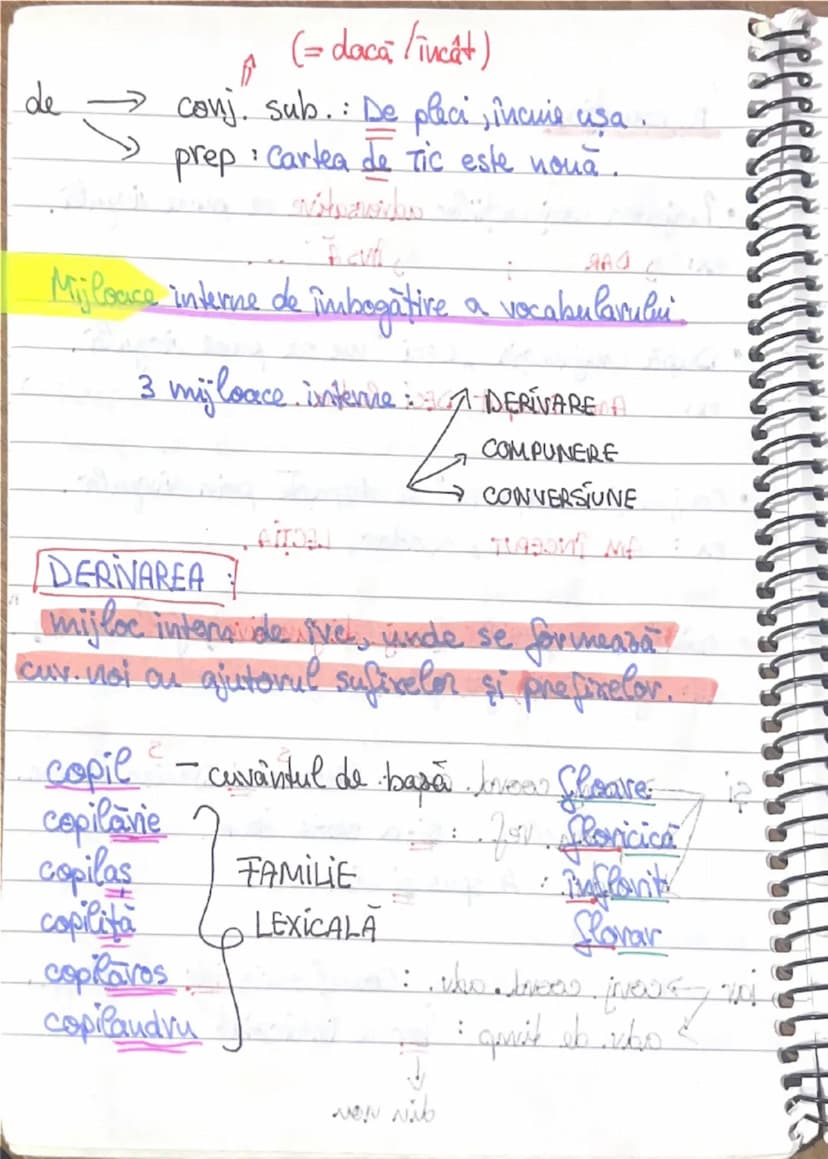 (= dacă / încât)
de → conj. sub. : De pleci, încuie ușa.
→ prep : Cartea de Tic este nouă.
Mijloace interne de îmbogățire a vocabularului
3 mijloace interne : → DERIVARE
→ COMPUNERE
→ CONVERSIUNE
DERIVAREA :
mijloc intern de îvc, unde se formează
cuv. noi cu ajutorul sufixelor și prefixelor.
copil – cuvântul de bază floare
copilărie floricică
copilaș FAMILIE înflorit
copiliță LEXICALĂ florar
copilăros
copilandru